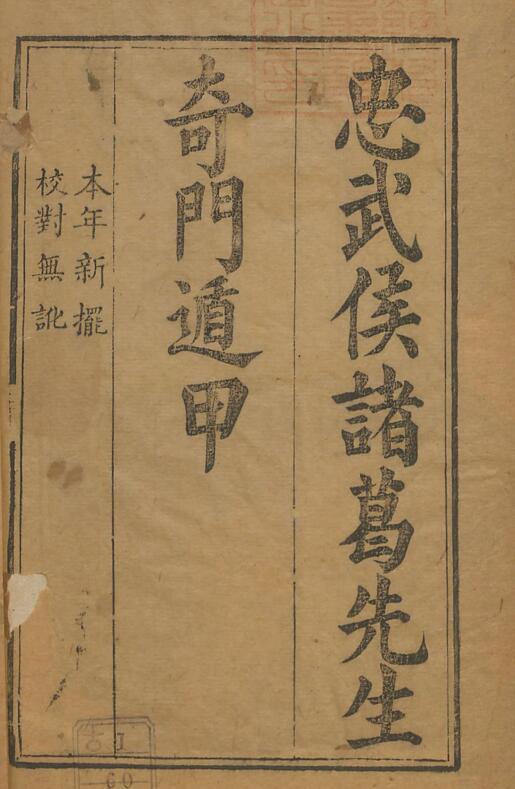 忠武侯諸葛先生
奇門遁甲
本年新擺
校對無訛
60